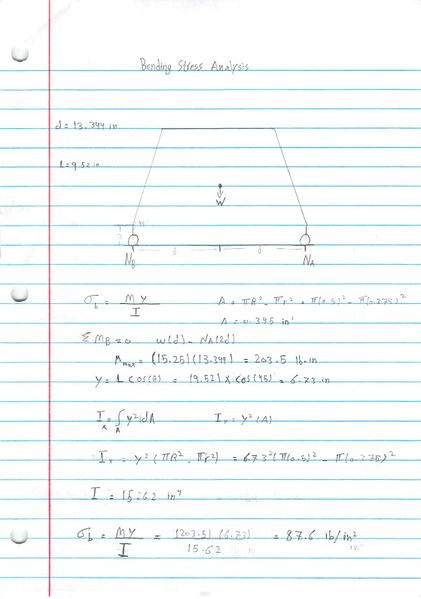 Bending Stress Analysis
d = 13.344 in
l = 9.52 in
W
N_B N_A
σ_b = MY/I A = πR² - πr² = π(0.5)² - π(0.375)²
A = 0.345 in²
ΣM_B = 0 W(d) - N_A(2d)
M_max = (15.25)(13.344) = 203.5 lb.in
y = L cos(θ) = (9.52) x cos(45) = 6.73 in
I_x = ∫_A y² dA I_x = y²(A)
I_x = y²(πR² - πr²) = 6.73²(π(0.5)² - π(0.375)²
I = 15.62 in⁴
σ_b = MY/I = (203.5)(6.73)/15.62 = 87.6 lb/in²